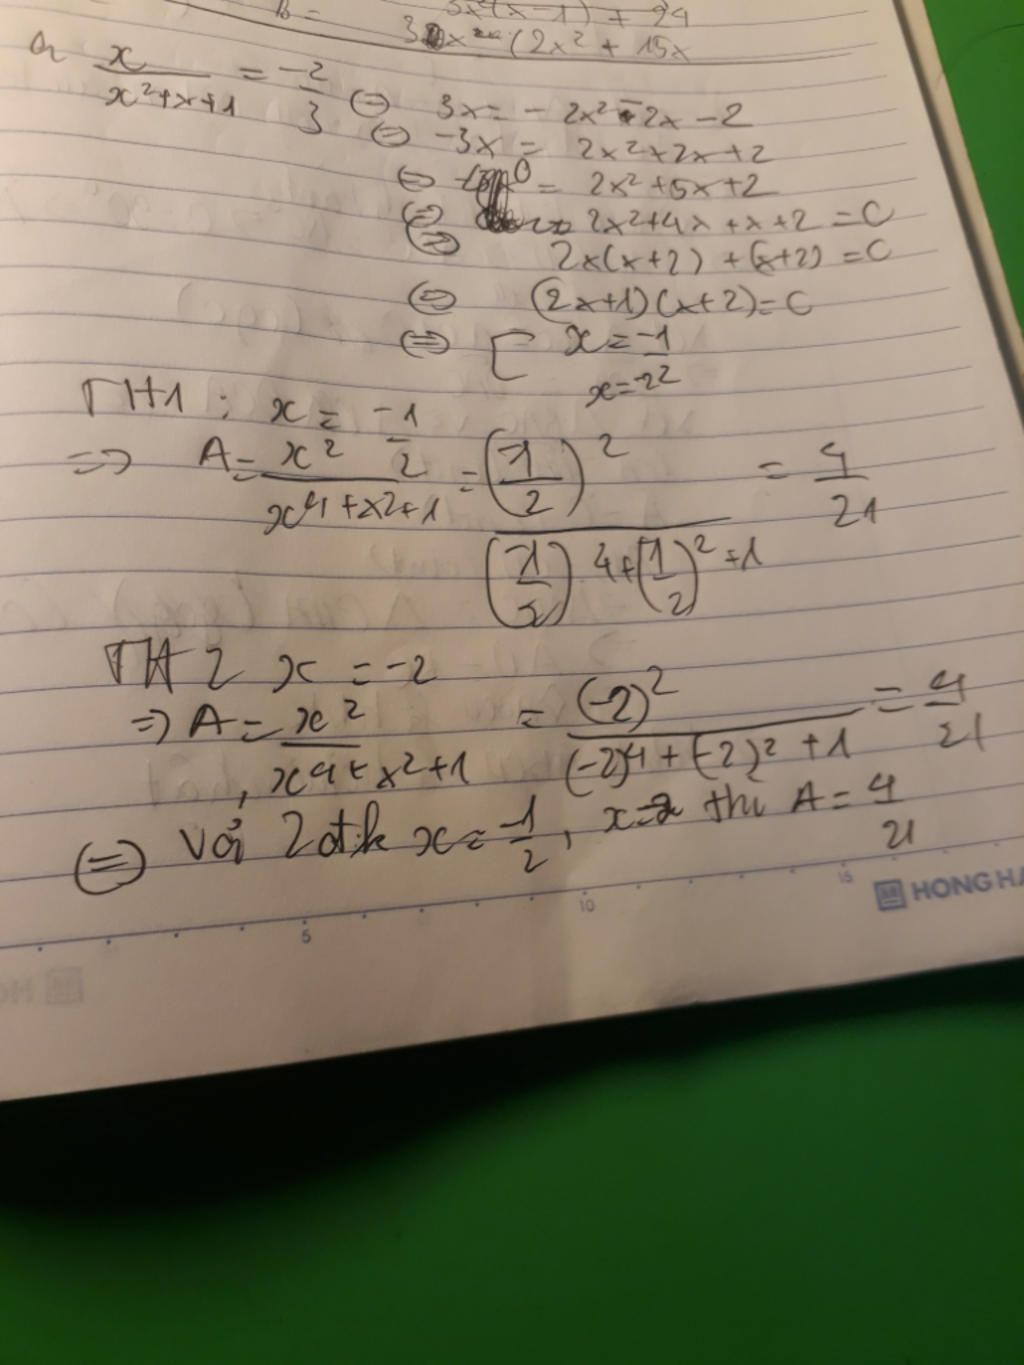 B = 3x²(x-1) + 24
3x - (2x² + 15x
a x/(x²+x+1) = -2/3 ⇔ 3x = - 2x² - 2x - 2
⇔ -3x = 2x²+2x+2
⇔ 0 = 2x²+5x+2
⇔ 2x²+4x+x+2 = 0
⇔ 2x(x+2) + (x+2) = 0
⇔ (2x+1)(x+2) = 0
⇔ [ x = -1/2
x = -2
TH1 : x = -1/2
=> A = x²/(x⁴+x²+1) = (-1/2)²/((-1/2)⁴+(-1/2)²+1) = 4/21
TH2 x = -2
=> A = x²/(x⁴+x²+1) = (-2)²/((-2)⁴+(-2)²+1) = 4/21
(=) Với 2 đtk x = -1/2, x=-2 thì A = 4/21
5 10 15
HONG HA